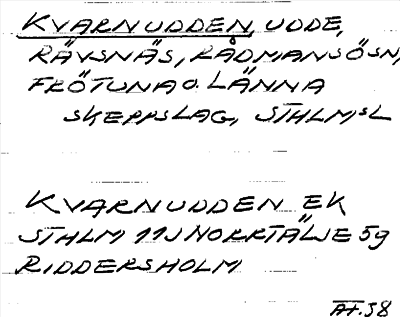 KVARNUDDEN, UDDE,
RÄVSNÄS, RÅDMANSÖSN,
FRÖTUNA O. LÄNNA
SKEPPSLAG, STHLMSL
KVARNUDDEN EK
STHLM 11J NORRTÄLJE 5g
RIDDERSHOLM
AT.58